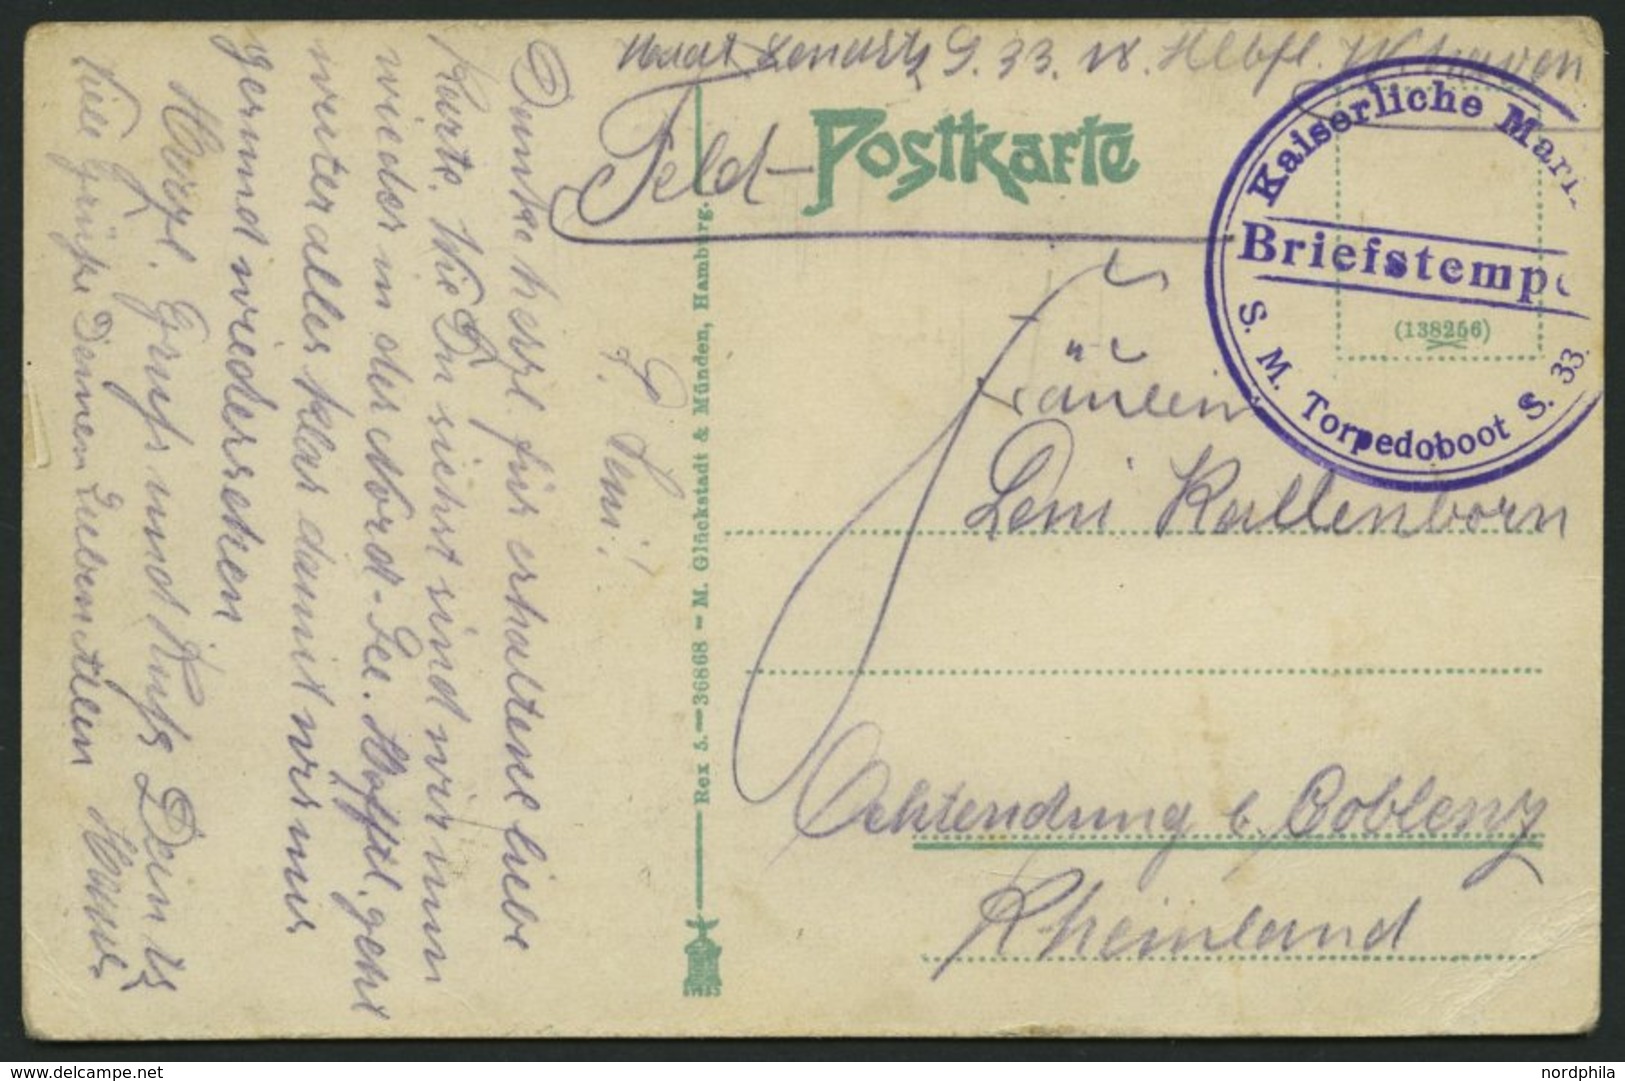 S. 33. IV. Hlbfl. W'haven
Feld-
Postkarte
Kaiserliche Mari
Briefstempe
S. M. Torpedoboot S. 33.
(138256)
Fräulein
Leni Kallenborn
Ochtendung b. Coblenz
Rheinland
Rex 5.—36868 – M. Glückstadt & Münden, Hamburg.
L. Leni!
Danke herzl. für erhaltene liebe
Karte. Wie Du siehst sind wir nun
wieder in der Nord-See. Hofftl. geht
weiter alles klar damit wir uns
gesund wiedersehen
Herzl. Gruß und Kuß Dein
Viele Grüße Deinen Lieben
nordphila